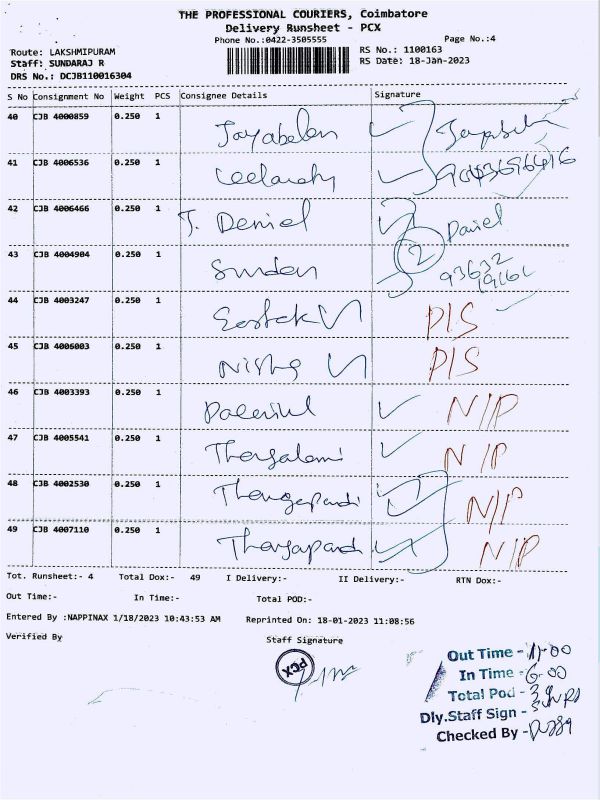 THE PROFESSIONAL COURIERS, Coimbatore
Delivery Runsheet - PCX
Phone No.:0422-3505555 Page No.:4
Route: LAKSHMIPURAM RS No.: 1100163
Staff: SUNDARAJ R RS Date: 18-Jan-2023
DRS No.: DCJB110016304
S No Consignment No Weight PCS Consignee Details Signature
40 CJB 4000859 0.250 1 Jayabalan
41 CJB 4006536 0.250 1
42 CJB 4006466 0.250 1 J. Deniel Daniel
2
43 CJB 4004904 0.250 1 93632
44 CJB 4003247 0.250 1 P/S
45 CJB 4006003 0.250 1 P/S
46 CJB 4003393 0.250 1 N/P
47 CJB 4005541 0.250 1 N/P
48 CJB 4002530 0.250 1 Thangapandi N/P
49 CJB 4007110 0.250 1 Thangapandi N/P
Tot. Runsheet:- 4 Total Dox:- 49 I Delivery:- II Delivery:- RTN Dox:-
Out Time:- In Time:- Total POD:-
Entered By :NAPPINAX 1/18/2023 10:43:53 AM Reprinted On: 18-01-2023 11:08:56
Verified By Staff Signature
PCX
Out Time - 11-00
In Time - 6-00
Total Pod -
Dly.Staff Sign -
Checked By -